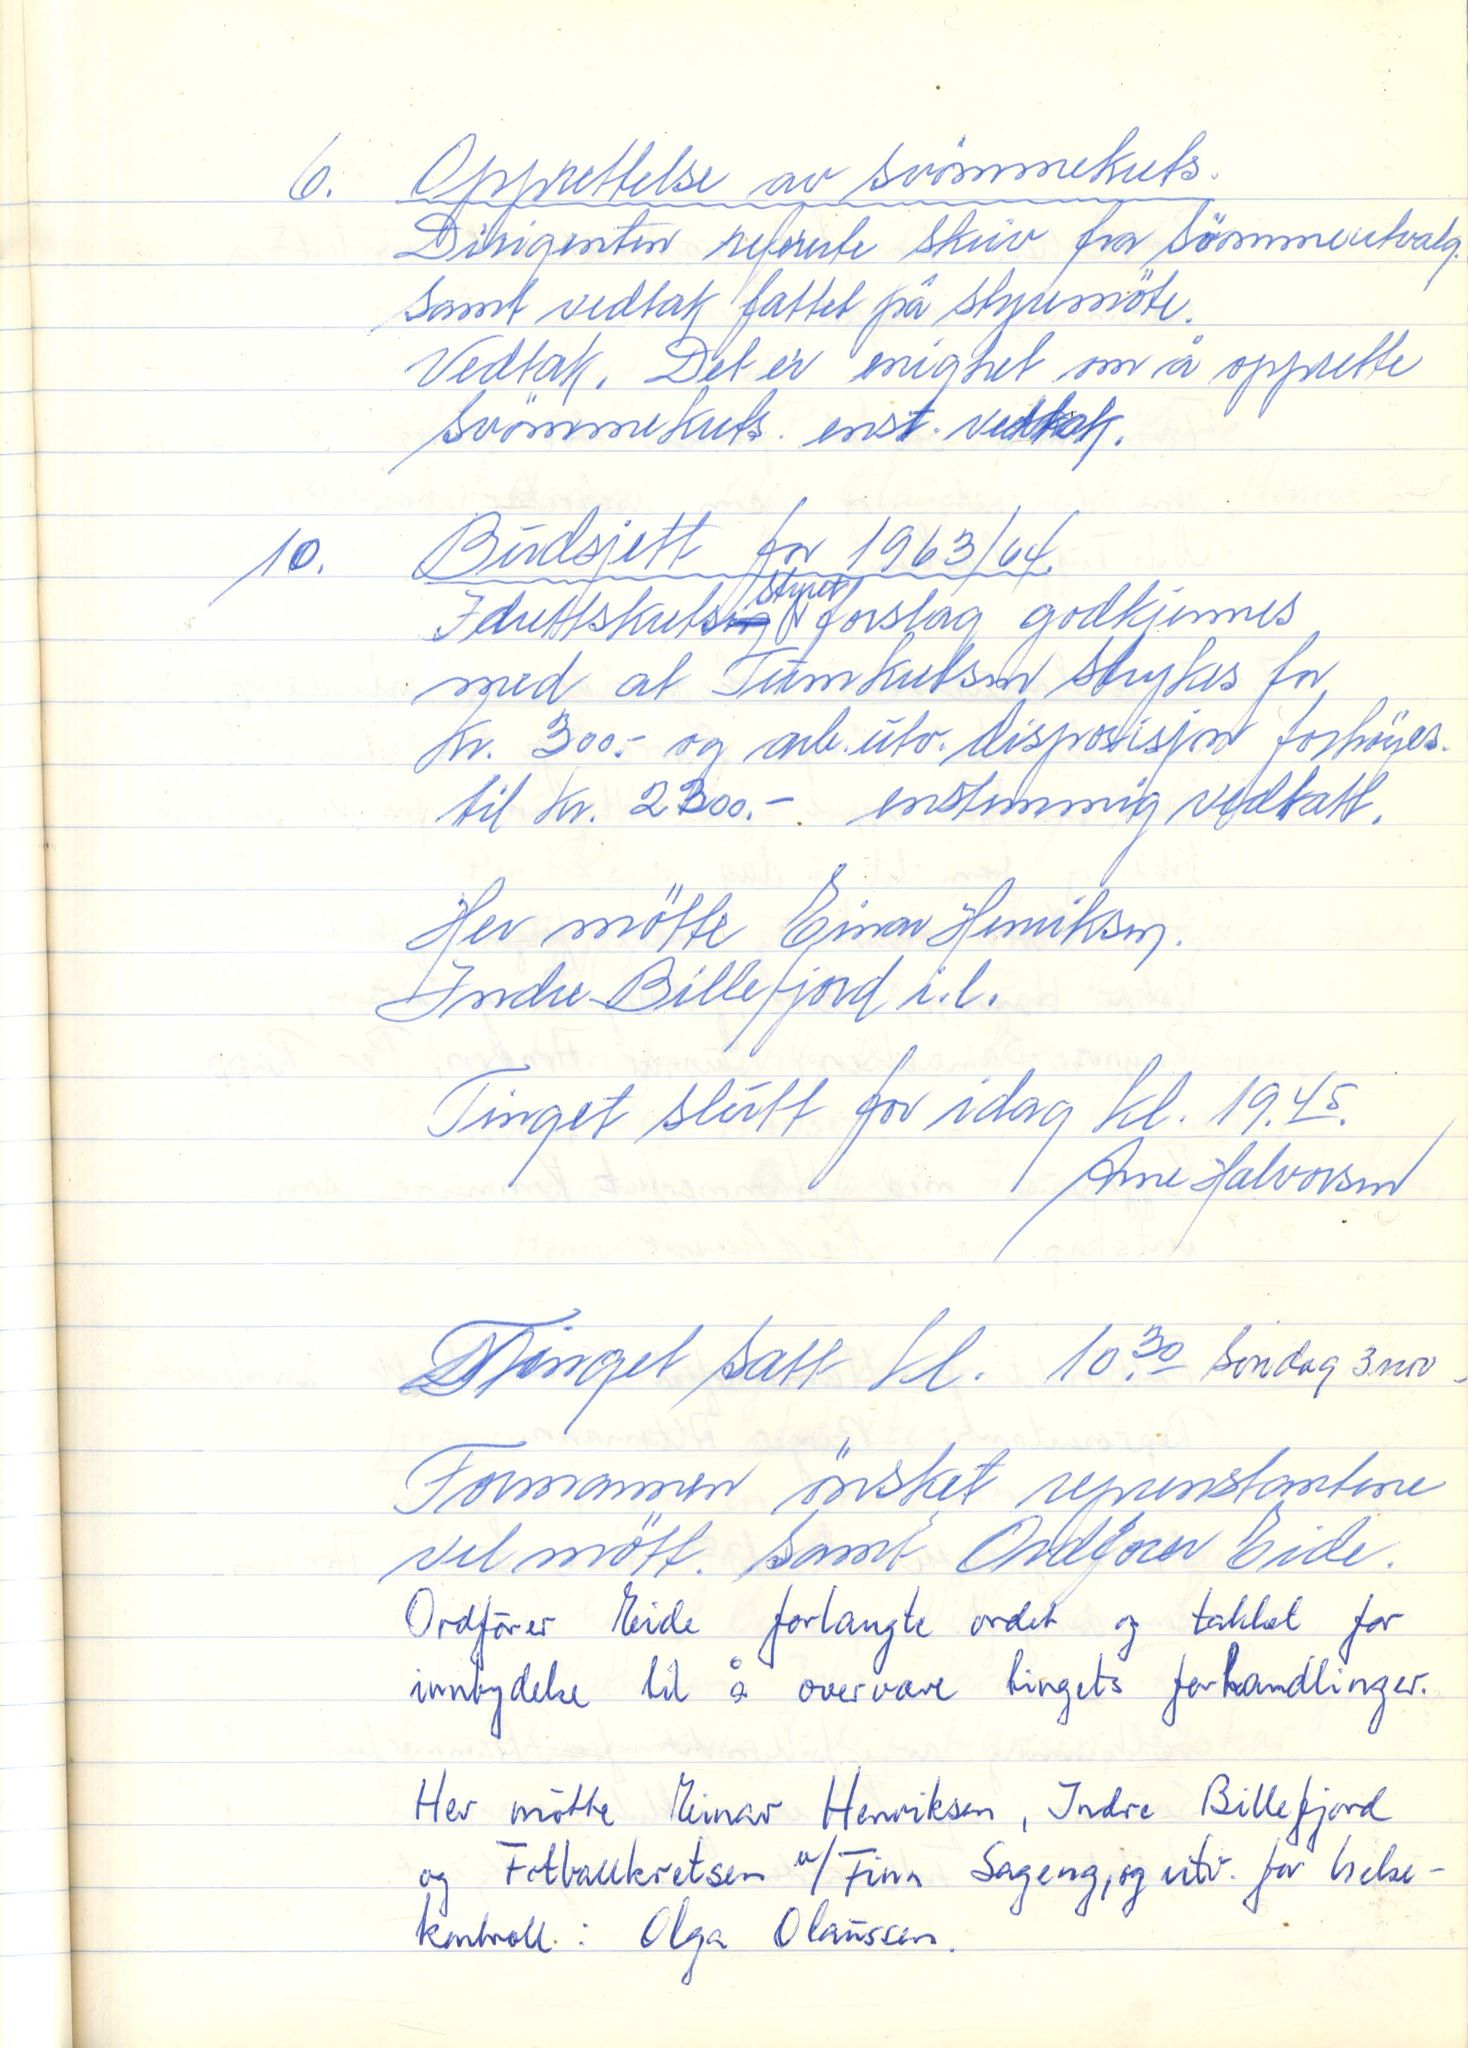 6. Opprettelse av svömmekrets.
Dirigenten refererte skriv fra Sömmeutvalg.
samt vedtak fattet på styremöte.
Vedtak. Det er enighet om å opprette
svömmekrets. enst. vedtak.
10. Budsjett for 1963/64.
Idrettskretsstyrets forslag godkjennes
med at Turnkretsen strykes for
kr. 300.- og arb. utv. disposisjon forhöyes.
til kr. 2300.- enstemmig vedtatt.
Her mötte Einar Henriksen.
Indre Billefjord i.l.
Tinget slutt for idag kl. 19.45.
Arne Halvorsen
Tinget satt kl. 10.30 Söndag 3 nov
Formannen önsket representantene
vel mött. samt Ordförer Eide.
Ordförer Eide forlangte ordet og takket for
innbydelse til å overvære tingets forhandlinger.
Her mötte Einar Henriksen, Indre Billefjord
og Fotballkretsen v/ Finn Sageng, og utv. for helse-
kontroll: Olga Olaussen.